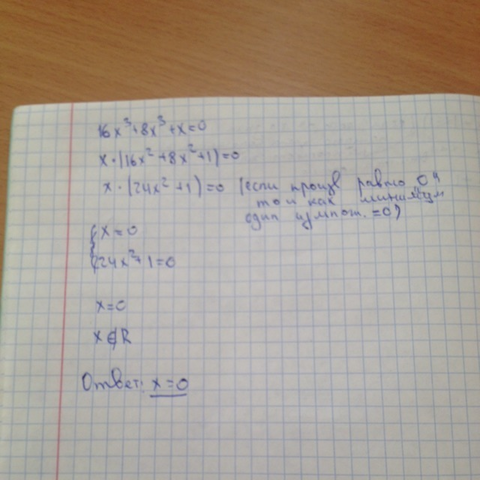 16x³+8x³+x=0
x·(16x²+8x²+1)=0
x·(24x²+1)=0 (если произв равно „0“
то и как минимум
один из множ. =0)
x=0
24x²+1=0
x=0
x∉R
Ответ: x=0